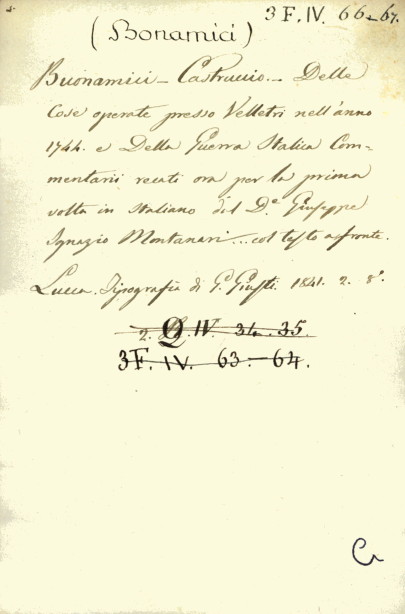 3 F. IV. 66-67.
(Bonamici)
Buonamici - Castruccio. - Delle
Cose operate presso Velletri nell'anno
1744. e Della Guerra Italica Com-
mentarii recati ora per la prima
volta in Italiano dal D.e Giuseppe
Ignazio Montanari... col testo a fronte.
Lucca. Tipografia di G. Giusti. 1841. 2. 8°.
2. Q. IV. 34. 35.
3F. IV. 63-64.